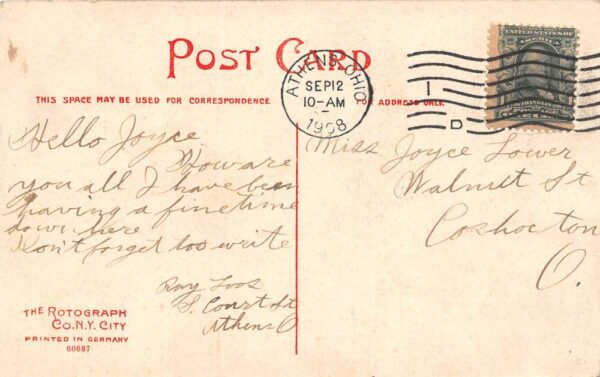 POST CARD
THIS SPACE MAY BE USED FOR CORRESPONDENCE.
FOR ADDRESS ONLY.
ATHENS, OHIO
SEP 12
10-AM
1908
1
D
Hello Joyce
How are
you all I have been
having a fine time
down here
Don't forget too write
Ray Loos
S. Court St
Athens O
Miss Joyce Lower
Walnut St
Coshocton
O.
THE ROTOGRAPH
CO. N.Y. CITY
PRINTED IN GERMANY
60687